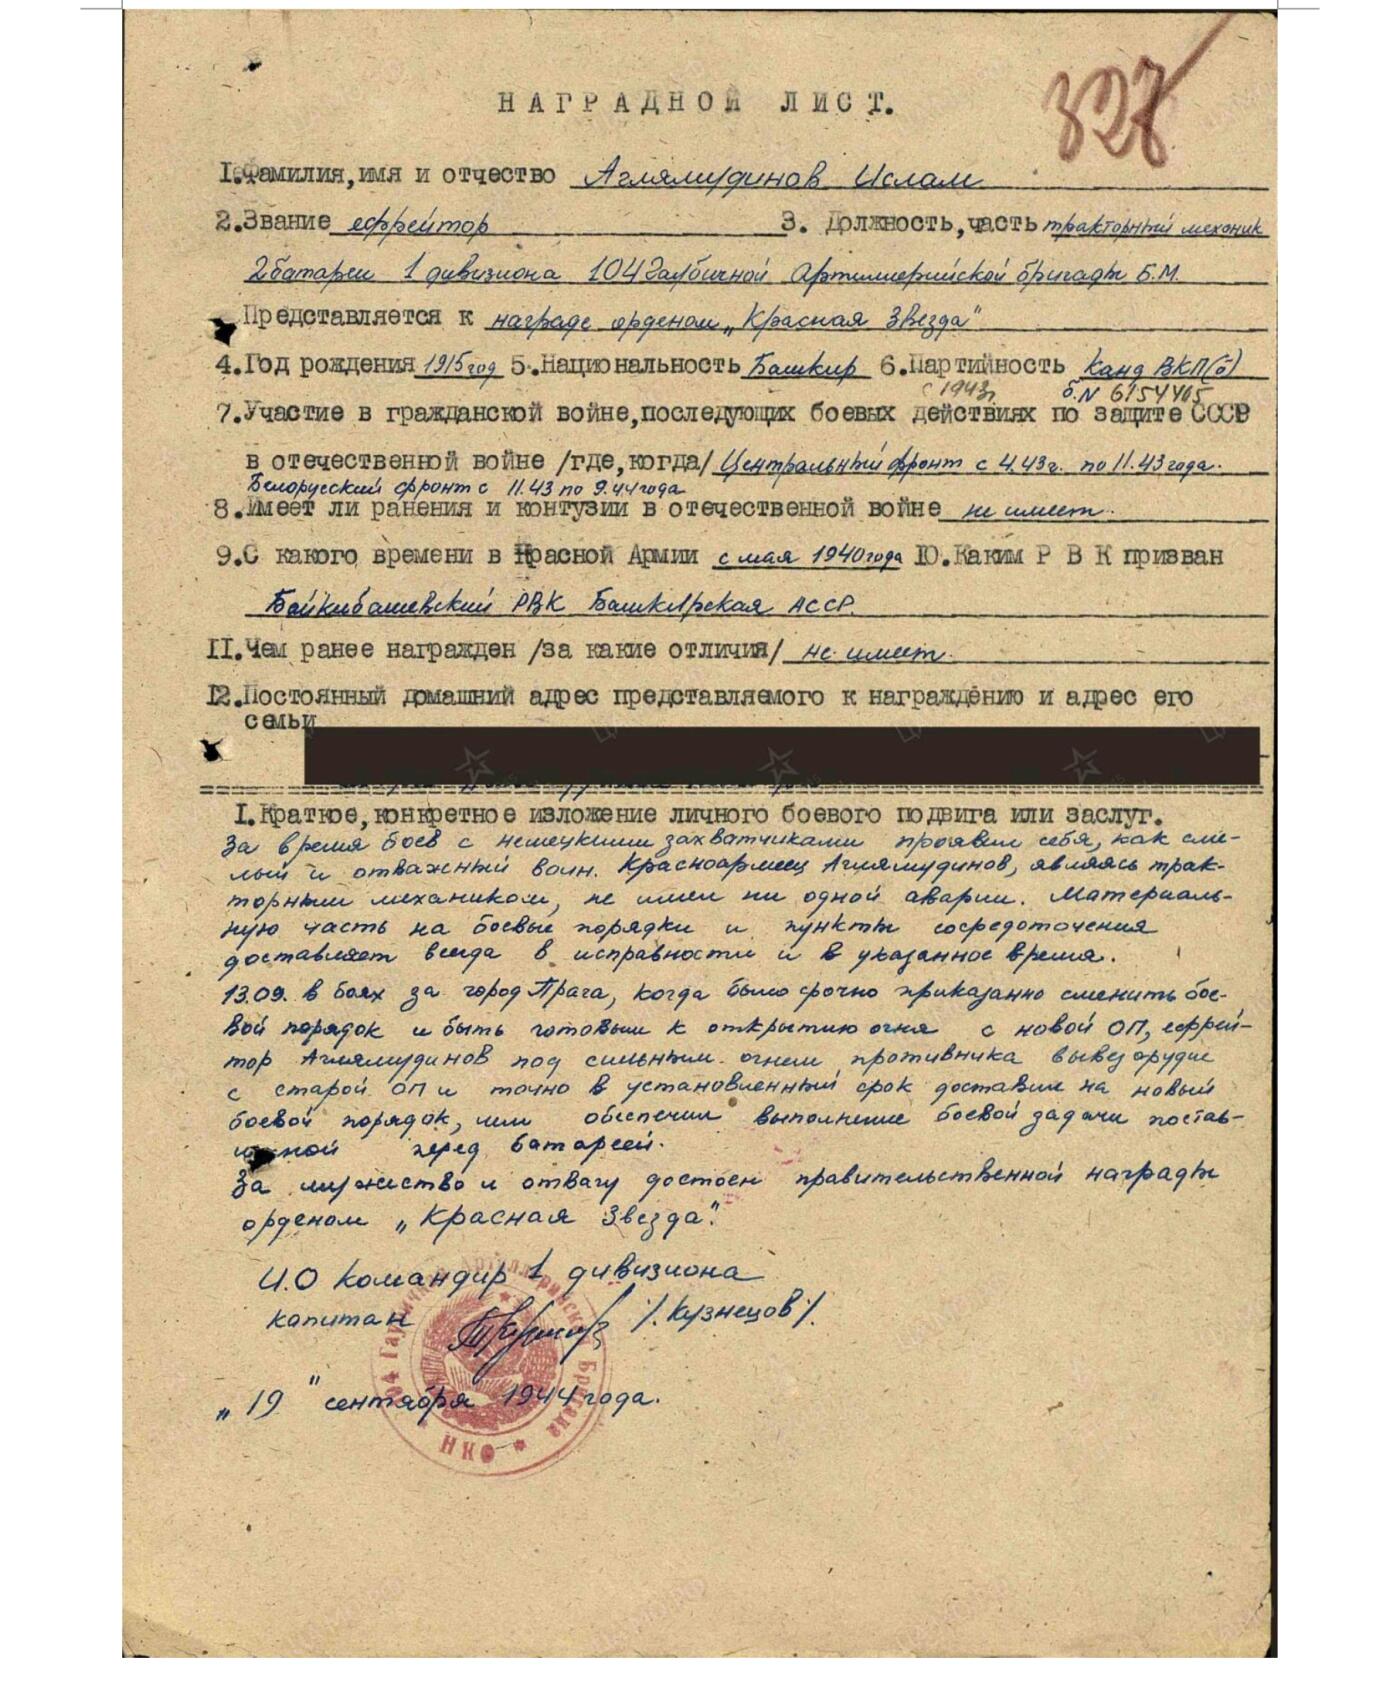 327
НАГРАДНОЙ ЛИСТ.
I.Фамилия,имя и отчество Аглямудинов Ислам
2.Звание ефрейтор 3. Должность,часть тракторный механик
2 батареи 1 дивизиона 104 Гаубичной Артиллерийской бригады Б.М.
Представляется к награде орденом „Красная Звезда"
4.Год рождения 1915 год 5.Национальность Башкир 6.Партийность Канд ВКП(б)
с 1943г б.N 6154405
7.Участие в гражданской войне,последующих боевых действиях по защите СССР
в отечественной войне /где,когда/ Центральный фронт с 4.43г. по 11.43 года.
Белорусский фронт с 11.43 по 9.44 года
8.Имеет ли ранения и контузии в отечественной войне не имеет.
9.С какого времени в Красной Армии с мая 1940 года IO.Каким Р В К призван
Байкибашевский РВК Башкирская АССР.
II.Чем ранее награжден /за какие отличия/ не имеет.
I2.Постоянный домашний адрес представляемого к награждению и адрес его
семьи
I.Краткое,конкретное изложение личного боевого подвига или заслуг.
За время боев с немецкими захватчиками проявил себя, как сме-
лый и отважный воин. Красноармеец Аглямудинов, являясь трак-
торным механиком, не имел ни одной аварии. Материаль-
ную часть на боевые порядки и пункты сосредоточения
доставляет всегда в исправности и в указанное время.
13.09. в боях за город Прага, когда было срочно приказанно сменить бое-
вой порядок и быть готовым к открытию огня с новой ОП, ефрей-
тор Аглямудинов под сильным огнем противника вывез орудие
с старой ОП и точно в установленный срок доставил на новый
боевой порядок, чем обеспечил выполнение боевой задачи постав-
ленной перед батареей.
За мужество и отвагу достоен правительственной награды
орденом „Красная Звезда".
И.О Командир 1 дивизиона
капитан /.Кузнецов/.
„19" сентября 1944 года.
104 Гаубичной Артиллерийской Бригада
НКО